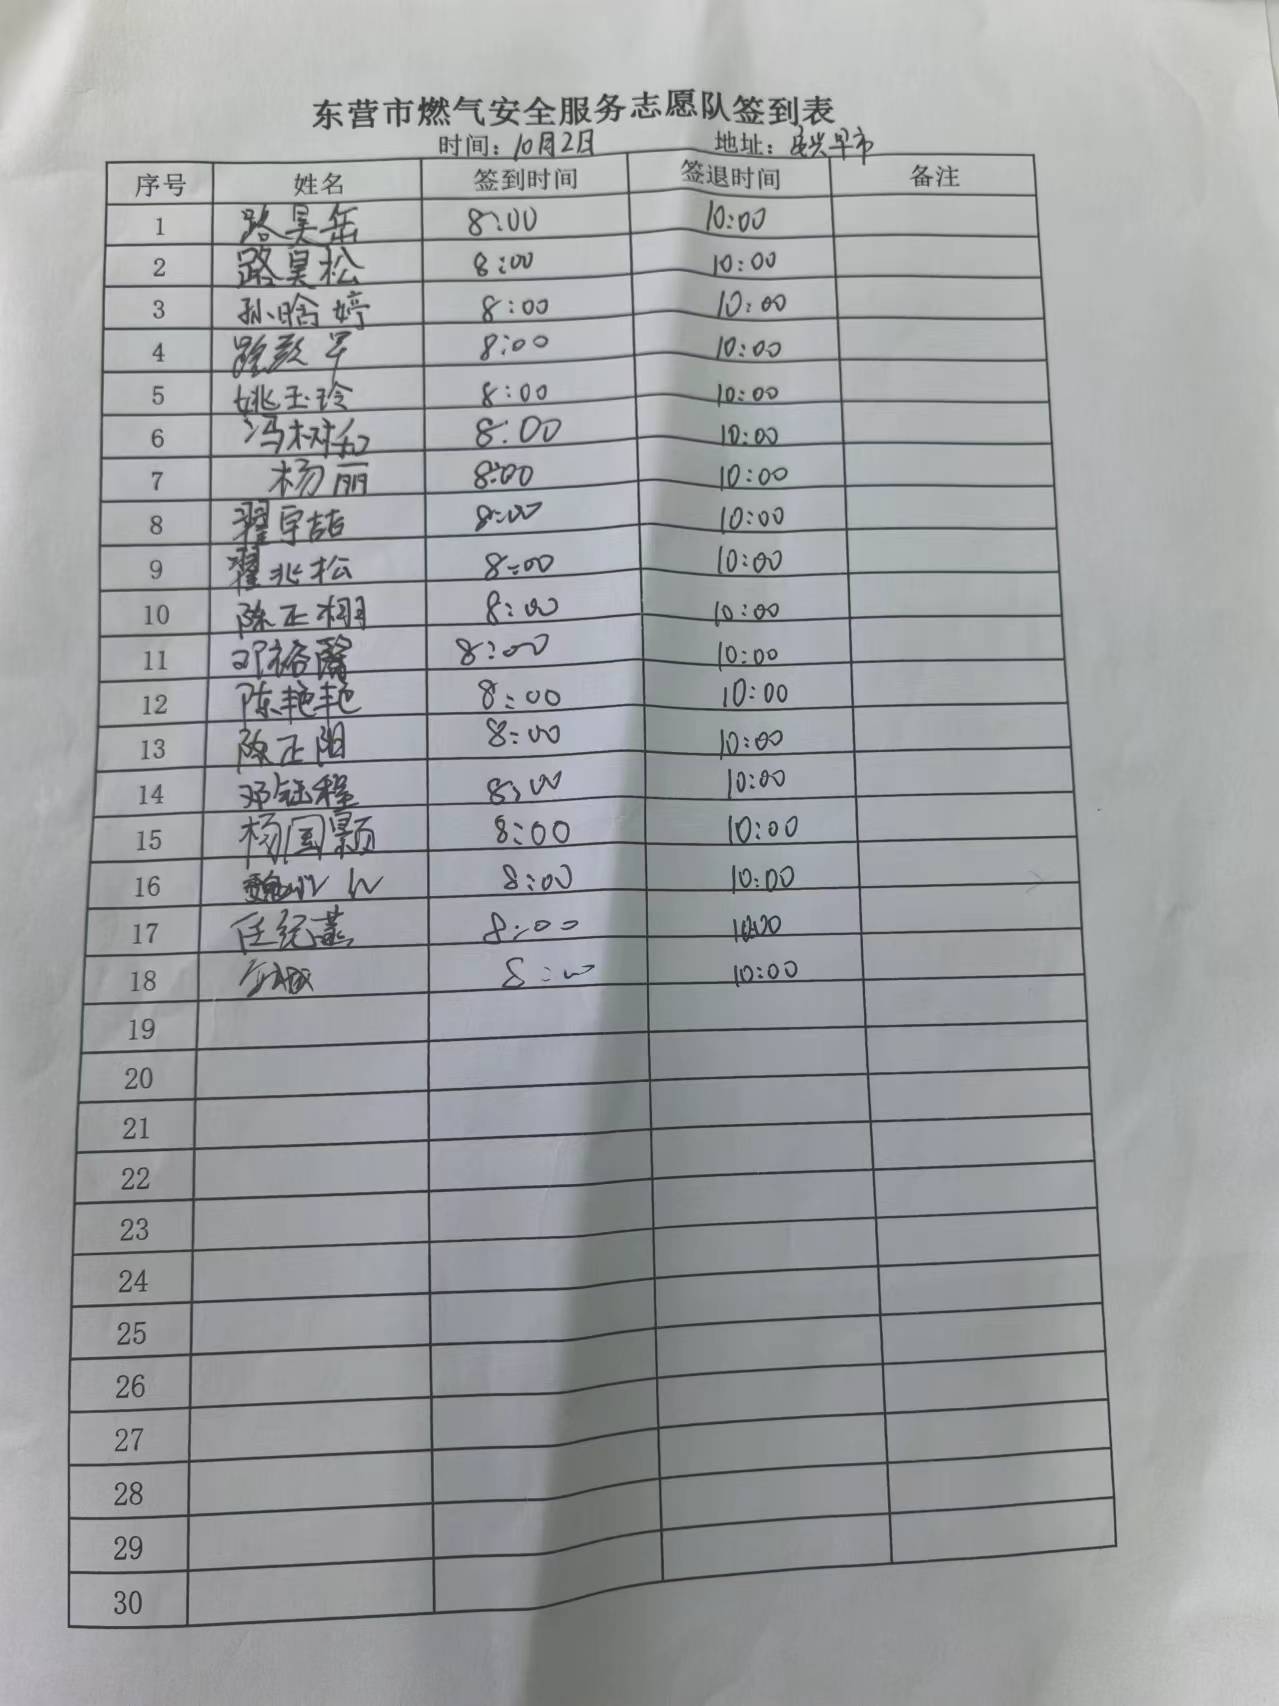 东营市燃气安全服务志愿队签到表
时间：10月2日 地址：早市
序号 姓名 签到时间 签退时间 备注
1 路昊岳 8:00 10:00
2 路昊松 8:00 10:00
3 孙晗婷 8:00 10:00
4 8:00 10:00
5 姚玉玲 8:00 10:00
6 冯树和 8:00 10:00
7 杨丽 8:00 10:00
8 翟宇喆 8:00 10:00
9 翟兆松 8:00 10:00
10 陈正栩 8:00 10:00
11 邓裕馨 8:00 10:00
12 陈艳艳 8:00 10:00
13 陈正阳 8:00 10:00
14 邓钰程 8:00 10:00
15 杨国颖 8:00 10:00
16 8:00 10:00
17 8:00 10:00
18 8:00 10:00
19
20
21
22
23
24
25
26
27
28
29
30